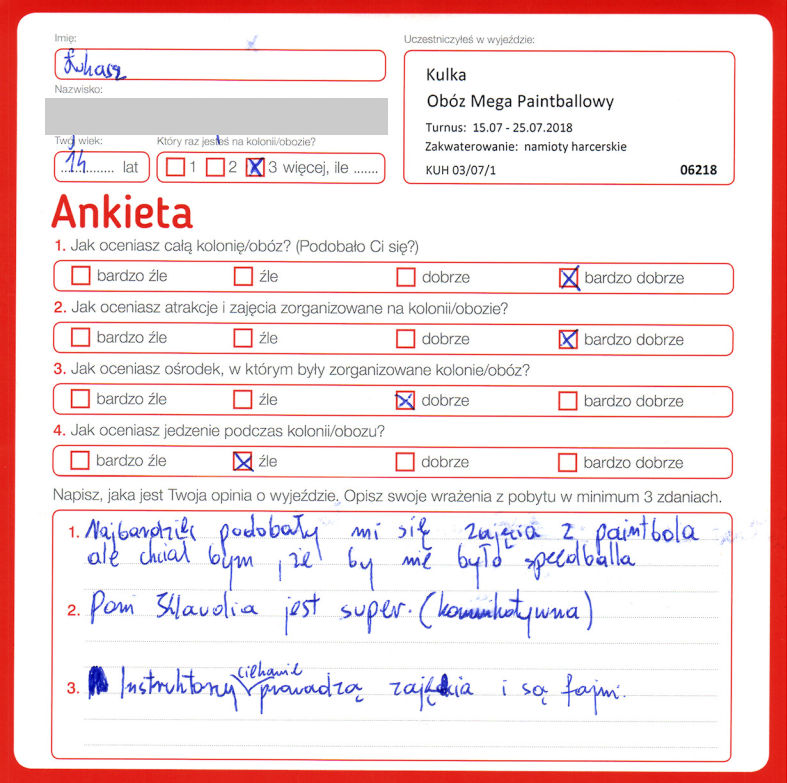 Imię:
Łukasz
Nazwisko:
Twój wiek:
14 lat
Który raz jesteś na kolonii/obozie?
1 2 3 więcej, ile .......
Uczestniczyłeś w wyjeździe:
Kulka
Obóz Mega Paintballowy
Turnus: 15.07 - 25.07.2018
Zakwaterowanie: namioty harcerskie
KUH 03/07/1 06218
Ankieta
1. Jak oceniasz całą kolonię/obóz? (Podobało Ci się?)
bardzo źle źle dobrze bardzo dobrze
2. Jak oceniasz atrakcje i zajęcia zorganizowane na kolonii/obozie?
bardzo źle źle dobrze bardzo dobrze
3. Jak oceniasz ośrodek, w którym były zorganizowane kolonie/obóz?
bardzo źle źle dobrze bardzo dobrze
4. Jak oceniasz jedzenie podczas kolonii/obozu?
bardzo źle źle dobrze bardzo dobrze
Napisz, jaka jest Twoja opinia o wyjeździe. Opisz swoje wrażenia z pobytu w minimum 3 zdaniach.
1. Najbardziej podobały mi się zajęcia z paintbola
ale chciał bym, że by nie było speedballa
2. Pani Klaudia jest super. (komunikatywna)
3. Instruktorzy ciekawie prowadzą zajęcia i są fajni.